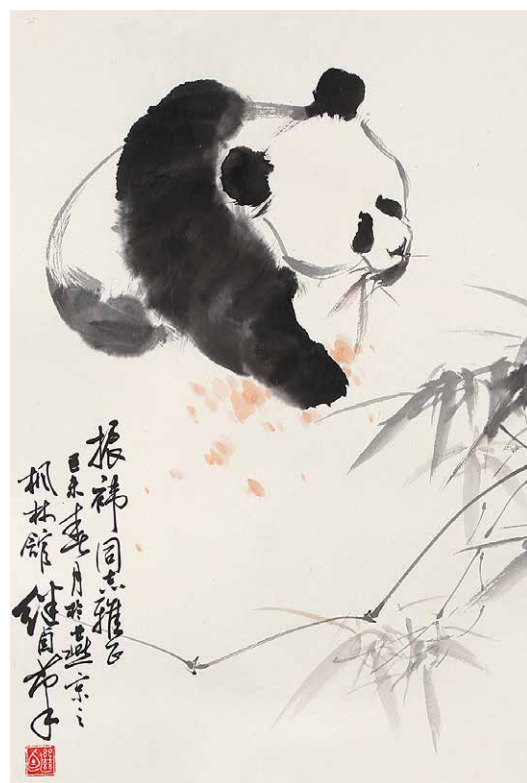 振祎同志雅正
己未春月於燕京之
枫林馆继卣布手